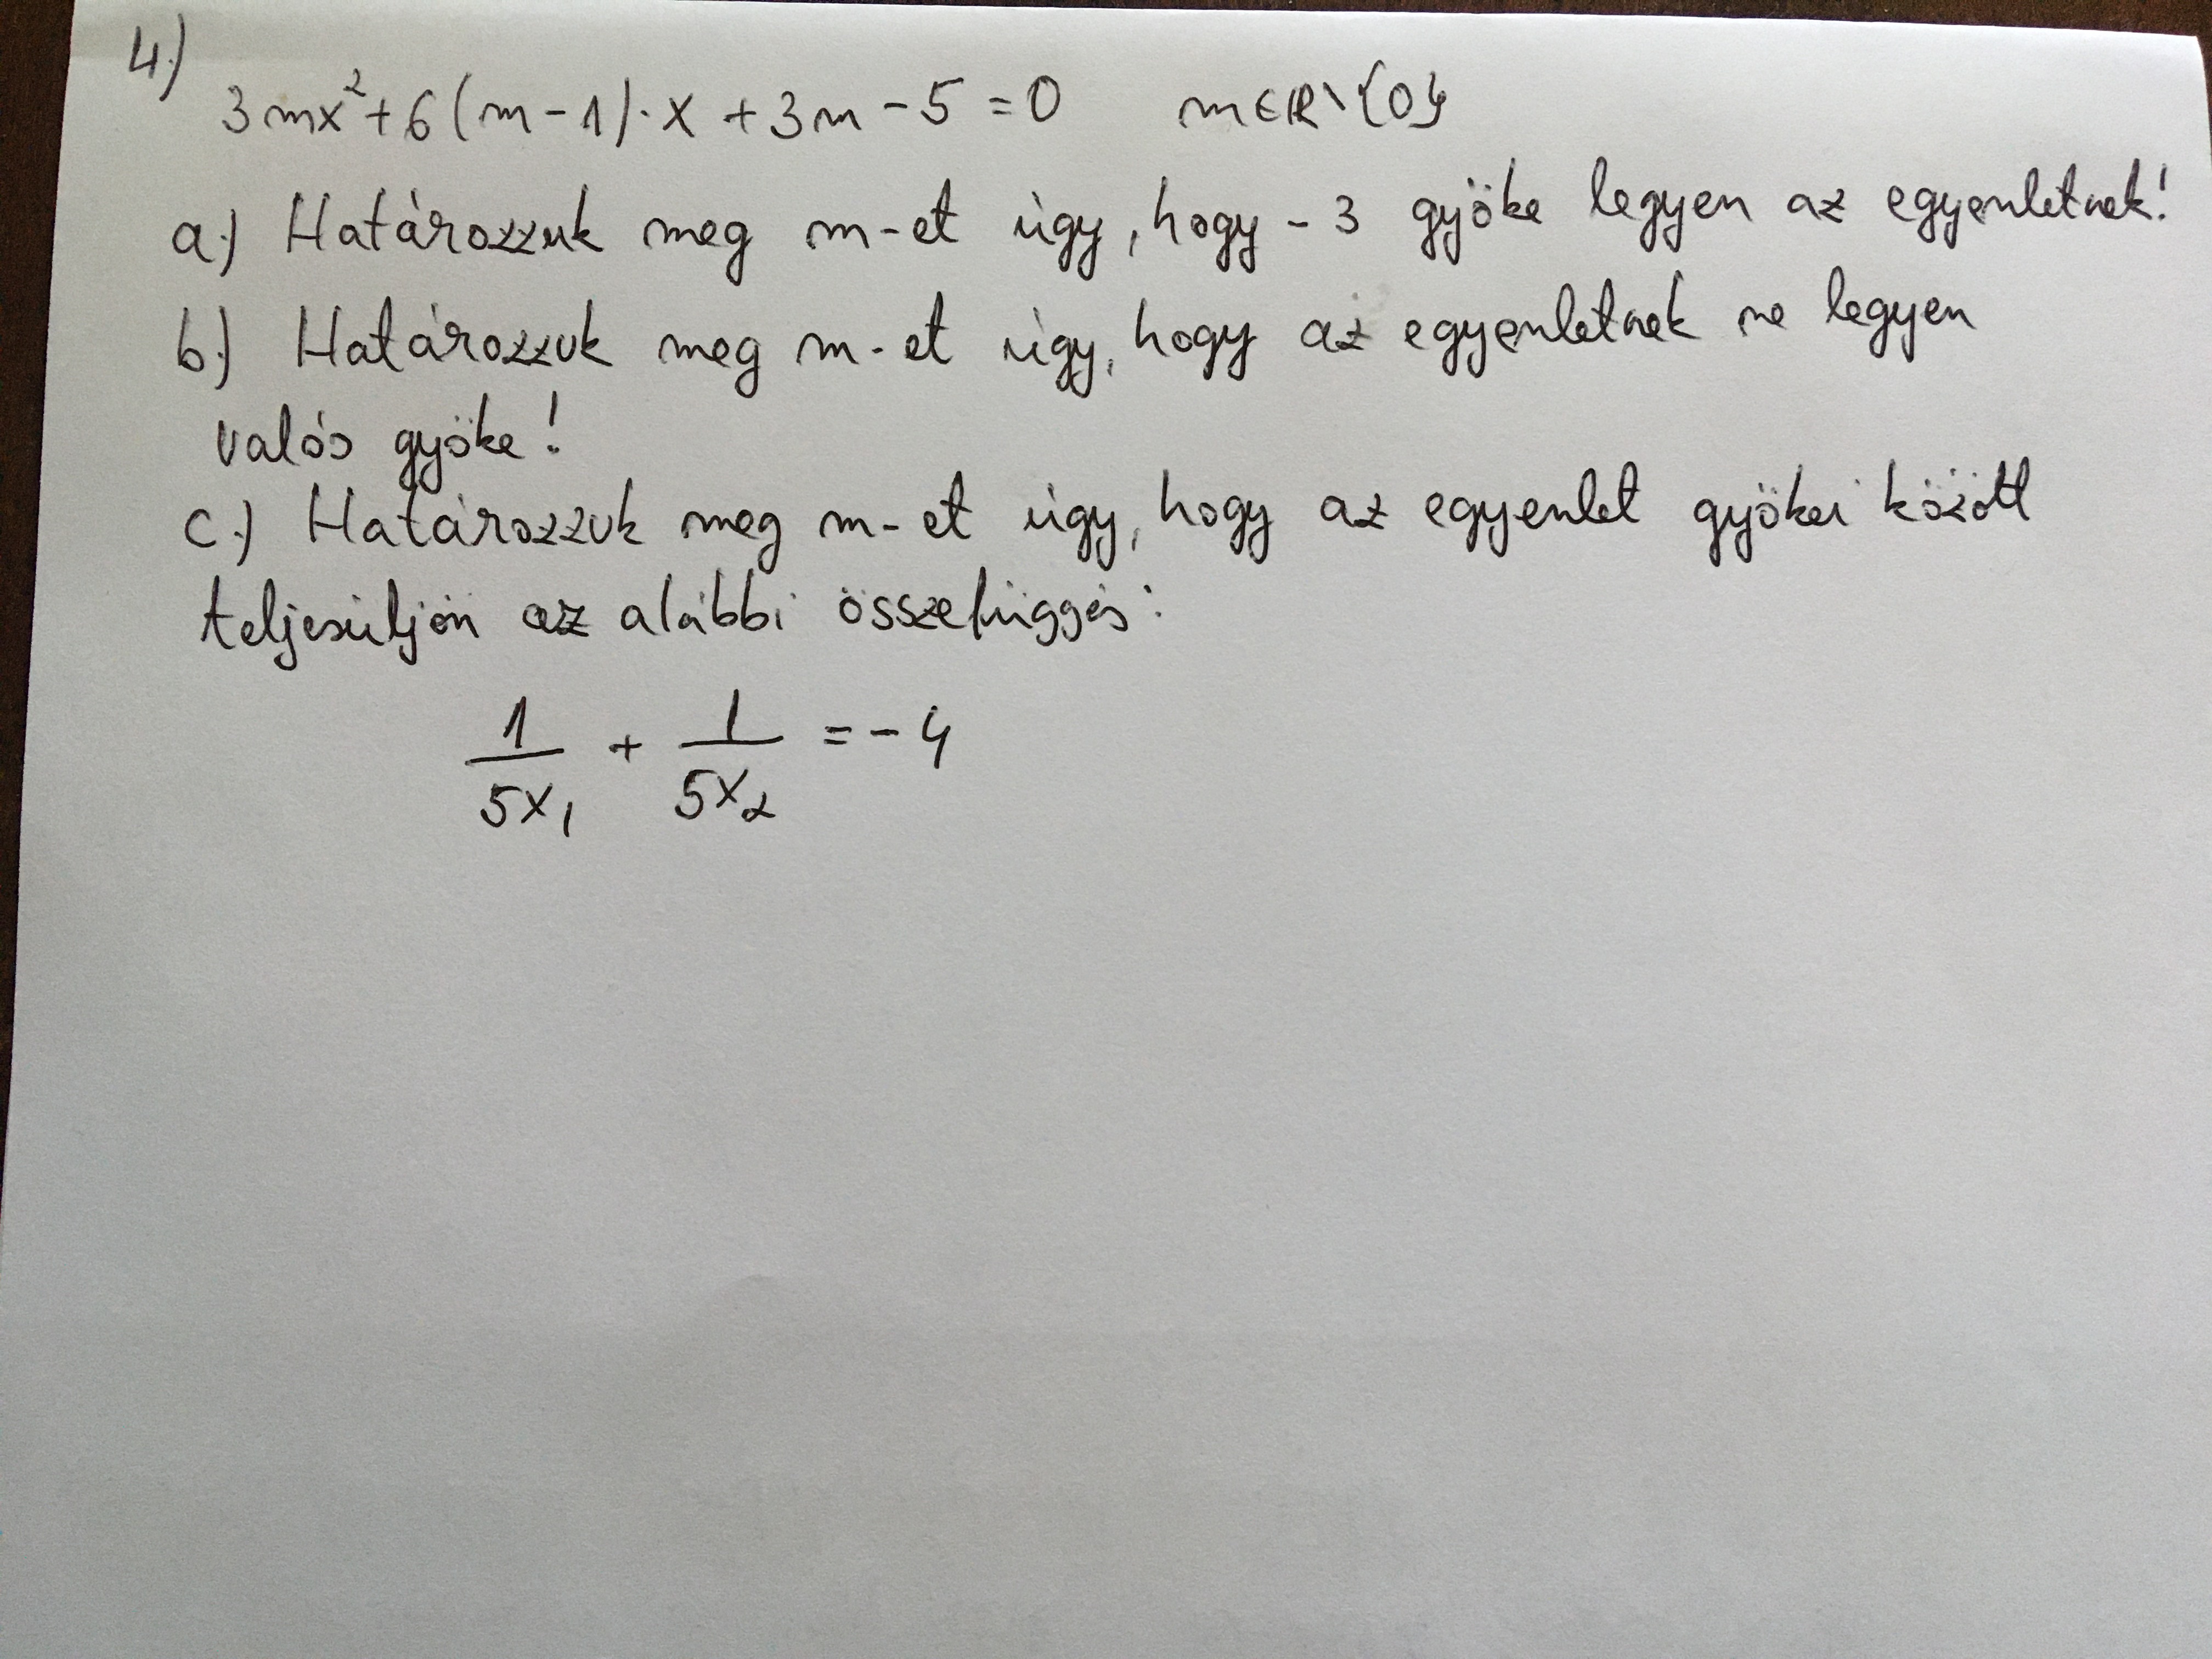 4.)
3mx²+6(m-1)·x+3m-5=0 m∈R\{0}
a.) Határozzuk meg m-et úgy, hogy -3 gyöke legyen az egyenletnek!
b.) Határozzuk meg m-et úgy, hogy az egyenletnek ne legyen
valós gyöke!
c.) Határozzuk meg m-et úgy, hogy az egyenlet gyökei között
teljesüljön az alábbi összefüggés:
1/5x₁ + 1/5x₂ = -4